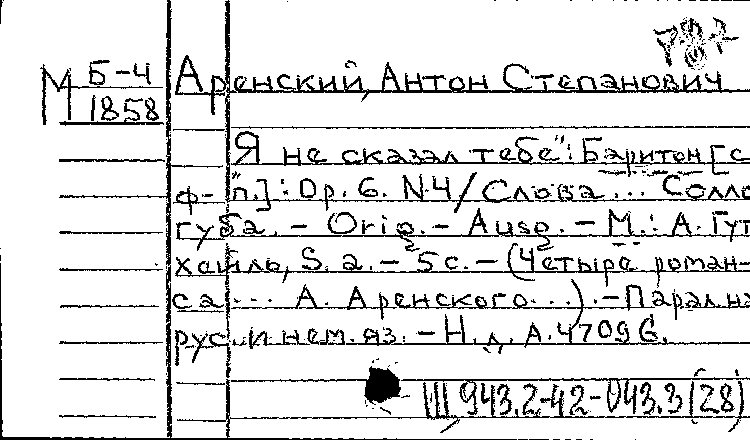 787
М Б-4
1858
Аренский, Антон Степанович
Я не сказал тебе": Баритон [с
ф-п.]: Op. 6. N.4/Слова... Солло
губа. – Orig. – Ausg. – М.: А. Гут
хейль, S. a. – 5 с. – (Четыре роман-
са... А. Аренского...). – Парал на
рус. и нем. яз. – Н. д. А. 4709 G.
Ш 943.2-42-043.3(28)